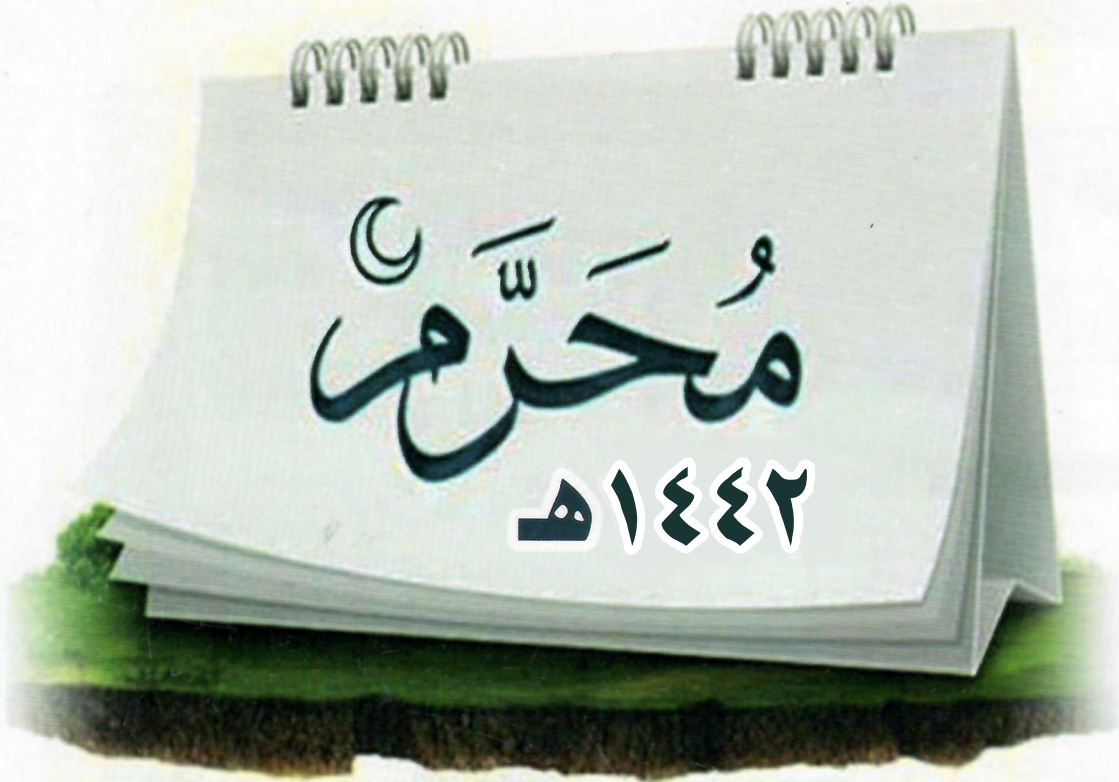 مُحَرَّم
١٤٤٢هـ